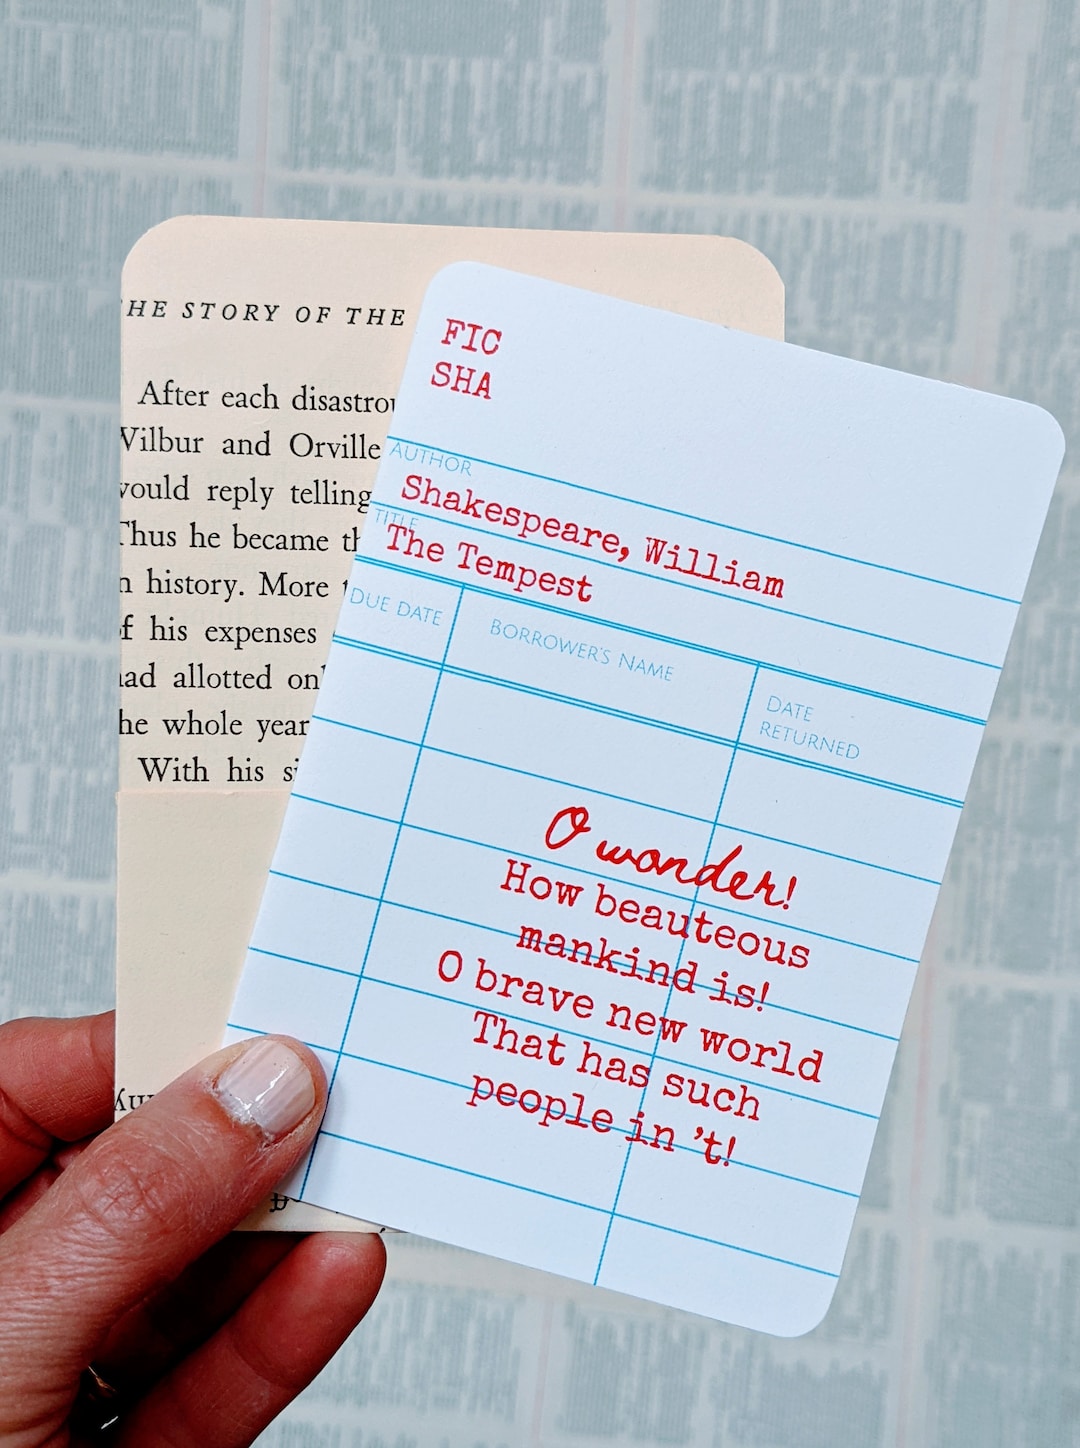 HE STORY OF THE
After each
Wilbur and Orville
would reply telling
Thus he became
history. More
his expenses
allotted
whole year
With his
FIC
SHA
AUTHOR
Shakespeare, William
TITLE
The Tempest
DUE DATE
BORROWER'S NAME
DATE
RETURNED
O wonder!
How beauteous
mankind is!
O brave new world
That has such
people in 't!